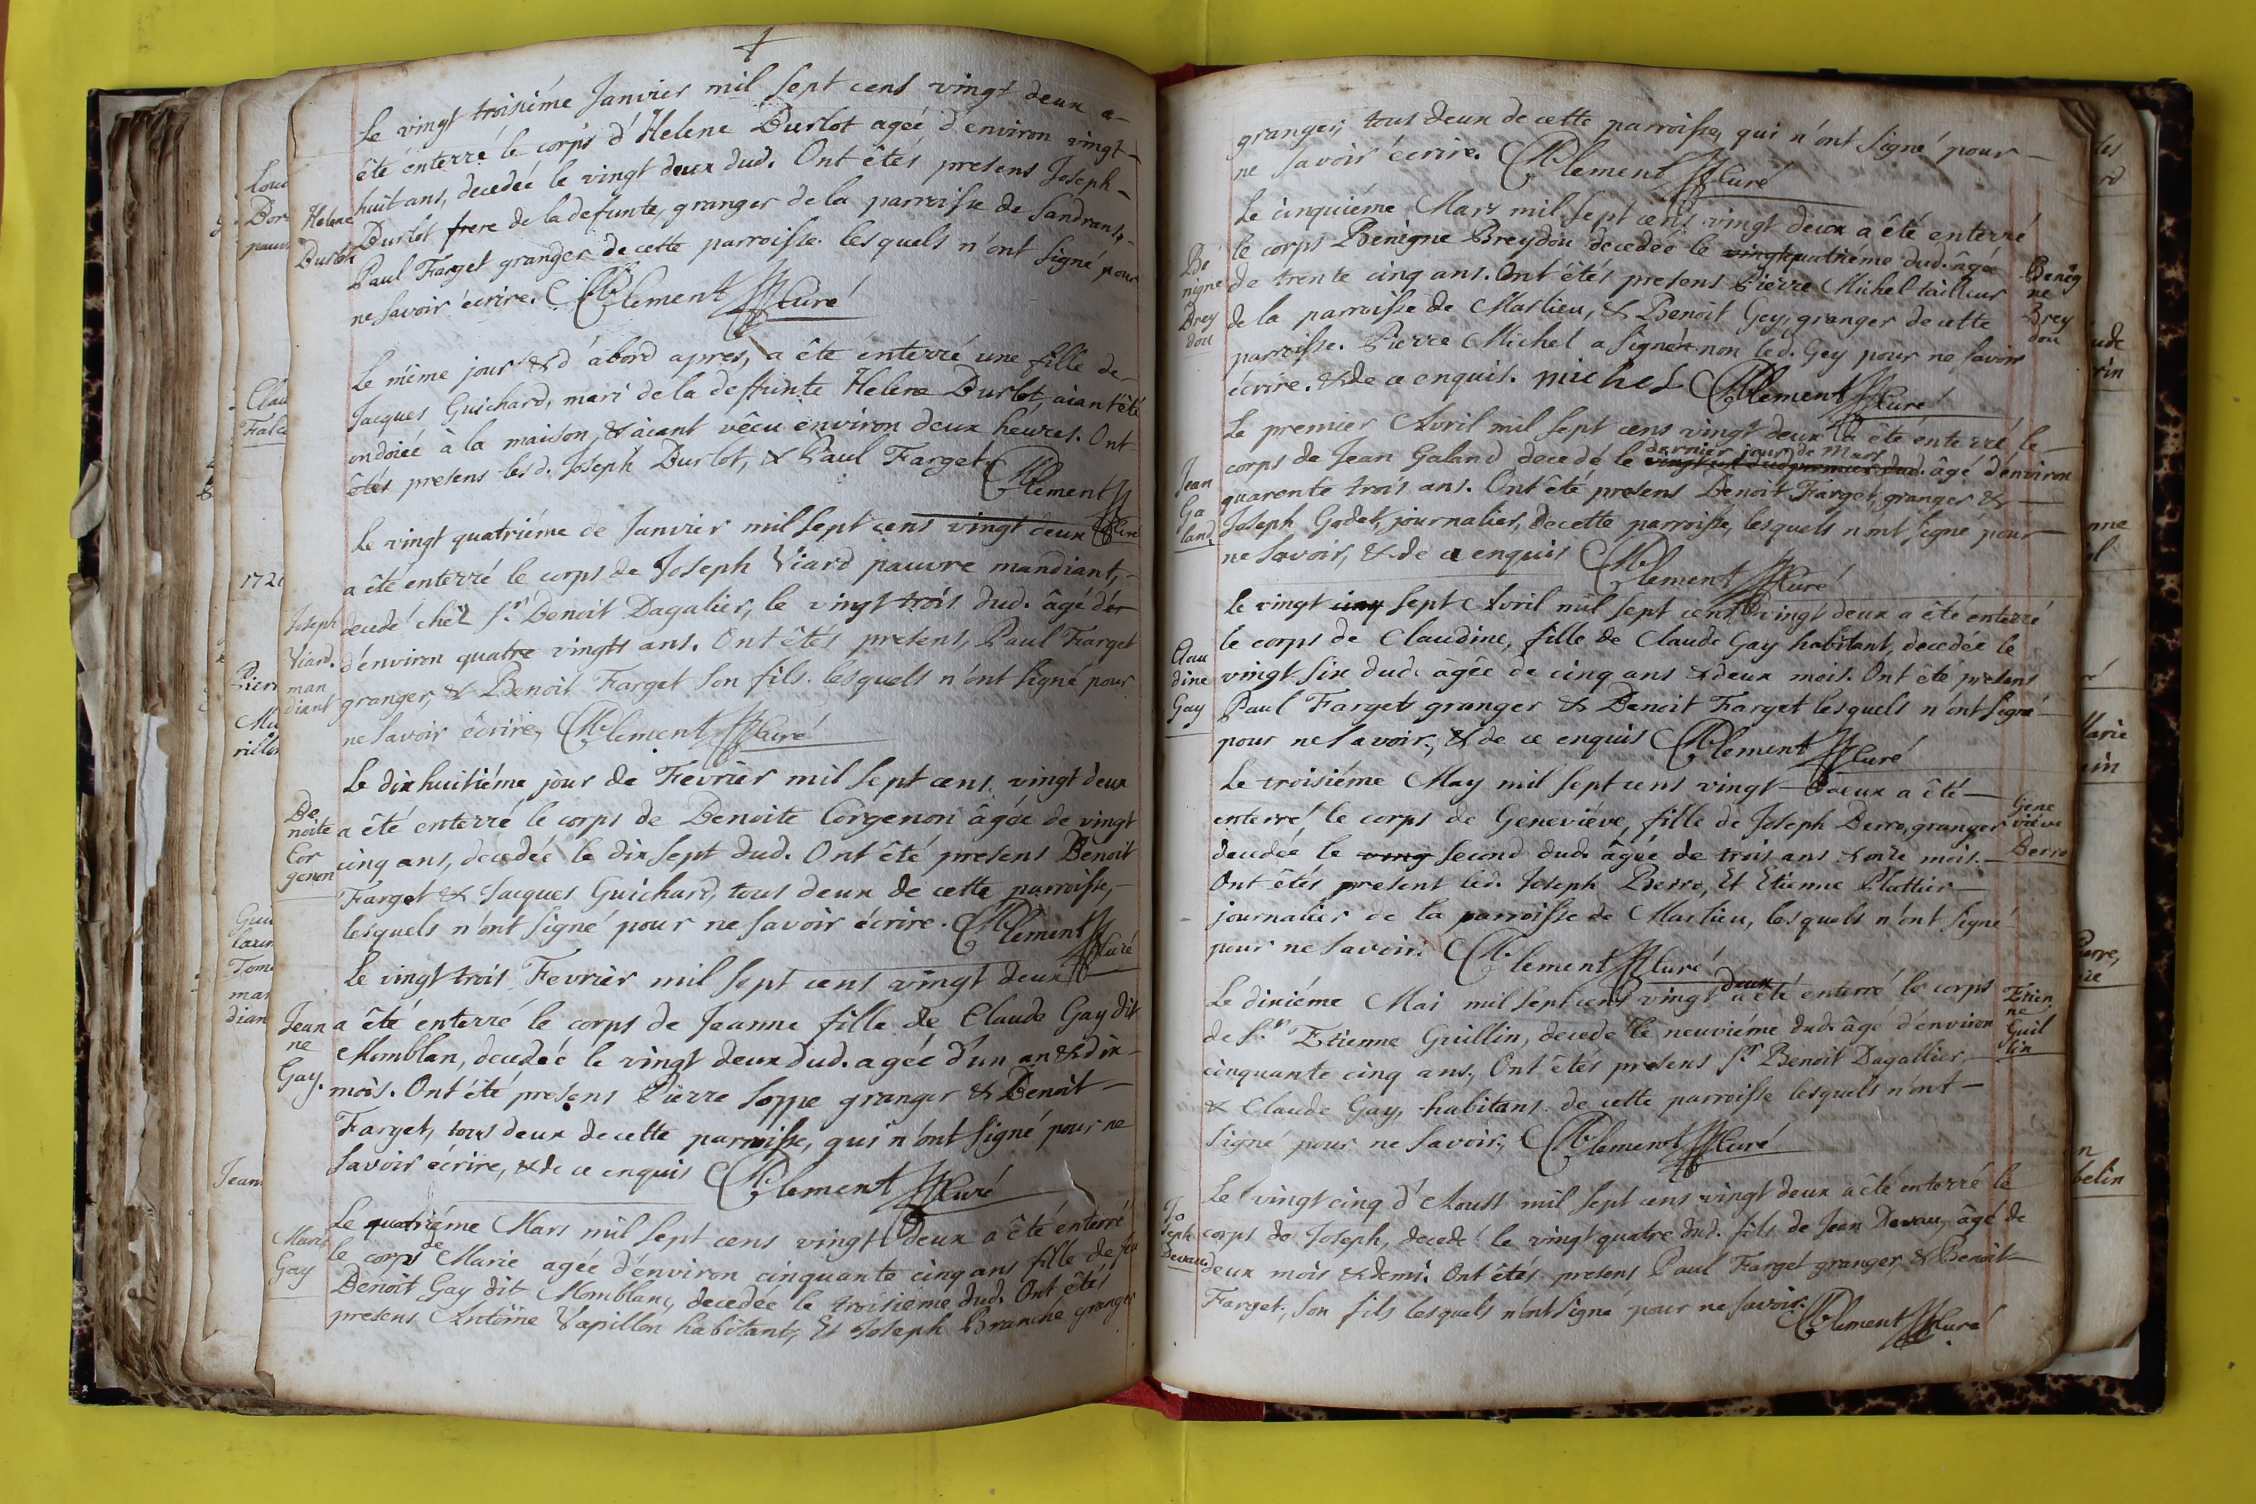 Le vingt troisiéme Janvier mil sept cens vingt deux a
êté enterré le corps d'Helene Durlot ageé d'environ vingt
huit ans, decedeé le vingt deux dud. Ont êtés presens Joseph
Helene Durlot
Durlot frere de la defunte, granger de la parroisse de Sandrens,
Paul Farget granger de cette parroisse. lesquels n'ont signé pour
ne savoir écrire. Clement Curé
Le même jour & d'abord apres, a êté enterré une fille de
Jacques Guichard, mari de la deffunte Helene Durlot, aiant êté
ondoiéé à la maison, & aiant vêcu environ deux heures. Ont
êtés presens lesd. Joseph Durlot, & Paul Farget. Clement
Curé
Le vingt quatriéme de Janvier mil sept cens vingt deux
a êté enterré le corps de Joseph Viard pauvre mandiant,
Joseph Viard. man diant
decedé chéz sr. Benoit Dagalier, le vingt trois dud. âgé d'er
d'environ quatre vingts ans. Ont êtés presens Paul Farget
granger, & Benoit Farget son fils. lesquels n'ont signé pour
ne savoir écrire, Clement Curé
Le dixhuitiéme jour de Fevrier mil sept cens vingt deux
Be noite Cor genon
a êté enterré le corps de Benoite Corgenon âgée de vingt
cinq ans, decedeé le dix sept dud. Ont êté presens Benoit
Farget & Jacques Guichard, tous deux de cette parroisse,
lesquels n'ont signé pour ne savoir écrire. Clement Curé
Le vingt trois Fevrier mil sept cens vingt deux
Jean ne Gay.
a êté enterré le corps de Jeanne fille de Claude Gay dit
Momblan, decedeé le vingt deux dud. ageé d'un an & dix
mois. Ont êté presens Pierre Soppe granger & Benoit
Farget, tous deux de cette parroisse, qui n'ont signé pour ne
savoir écrire, & de ce enquis Clement Curé
Le quatriéme Mars mil sept cens vingt deux a êté enterré
Marie Gay
le corps de Marie ageé d'environ cinquante cinq ans fille de feu
Benoit Gay dit Momblan, decedeé le troisieme dud. Ont êtés
presens Antoine Vapillon habitant, Et Joseph Branche granger
granger, tous deux de cette parroisse, qui n'ont signé pour
ne savoir écrire. Clement Curé
Le cinquiéme Mars mil sept cens vingt deux a êté enterré
le corps Benigne Breydou decedeé le vingt quatriéme dud. âgeé
Be nigne Brey dou
de trente cinq ans. Ont êtés presens Pierre Michel tailleur
Benig ne Brey dou
de la parroisse de Marlieu, & Benoit Gey, granger de cette
parroisse. Pierre Michel a signé non led. Gey pour ne savoir
écrire. & de ce enquis. michel Clement Curé
Le premier Avril mil sept cens vingt deux a êté enterré le
corps de Jean Galand decedé le dernier jour de Mars âgé d'environ
Jean Ga land.
quarente trois ans. Ont êté presens Benoit Farget, granger &
Joseph Godet, journalier, de cette parroisse, lesquels n'ont signé pour
ne savoir, & de ce enquis Clement Curé
Le vingt cinq sept Avril mil sept cens vingt deux a êté enterré
le corps de Claudine, fille de Claude Gay habitant, decedéé le
Clau dine Gay
vingt six dud. âgéé de cinq ans & deux mois. Ont êté presens
Paul Farget granger & Benoit Farget lesquels n'ont signé
pour ne savoir, & de ce enquis Clement Curé
Le troisiéme May mil sept cens vingt deux a êté
enterré le corps de Geneviéve, fille de Joseph Berro, granger
Gene viève Berro
decedéé le ving second dud. âgéé de trois ans & onze mois.
Ont êtés present led. Joseph Berro, Et Etienne Plottier
journalier de la parroisse de Marlieu, lesquels n'ont signé
pour ne savoir. Clement Curé
Le dixiéme Mai mil sept cens vingt deux a êté enterré le corps
Etien ne Guil lin
de sr. Etienne Guillin, decedé le neuviéme dud. âgé d'environ
cinquante cinq ans, Ont êtés presens sr. Benoit Dagallier,
& Claude Gay, habitans de cette parroisse lesquels n'ont
signé pour ne savoir, Clement Curé
Le vingt cinq d'Aoust mil sept cens vingt deux a êté enterré le
Jo seph Devaux
corps de Joseph, decedé le vingt quatre dud. fils de Jean Devau, âgé de
deux mois & demi. Ont êtés presens Paul Farget granger, & Benoit
Farget, son fils lesquels n'ont signé pour ne savoir. Clement Curé